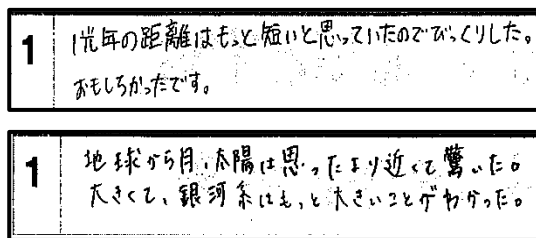 1
1光年の距離はもっと短いと思っていたのでびっくりした。
おもしろかったです。
1
地球から月、太陽は思ったより近くて驚いた。
大きくて、銀河系はもっと大きいことがわかった。